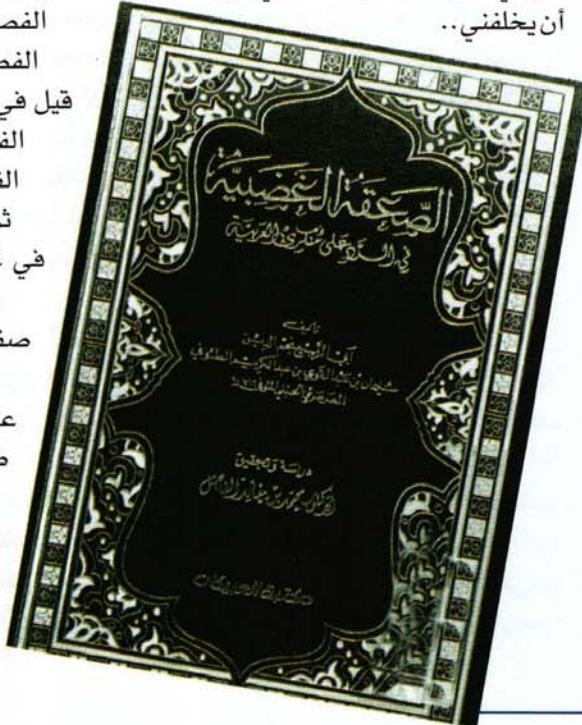 أن يخلفني..
الفص
الفص
قيل في
الف
الف
ث
في
صف
ع
الصعقة الغضبية
في الرد على منكري العربية
تأليف
أبي الربيع نجم الدين
سليمان بن عبدالقوي بن عبدالكريم الطوفي
الصرصري الحنبلي المتوفى
دراسة وتحقيق
الدكتور محمد بن خالد الفاضل
مكتبة العبيكان